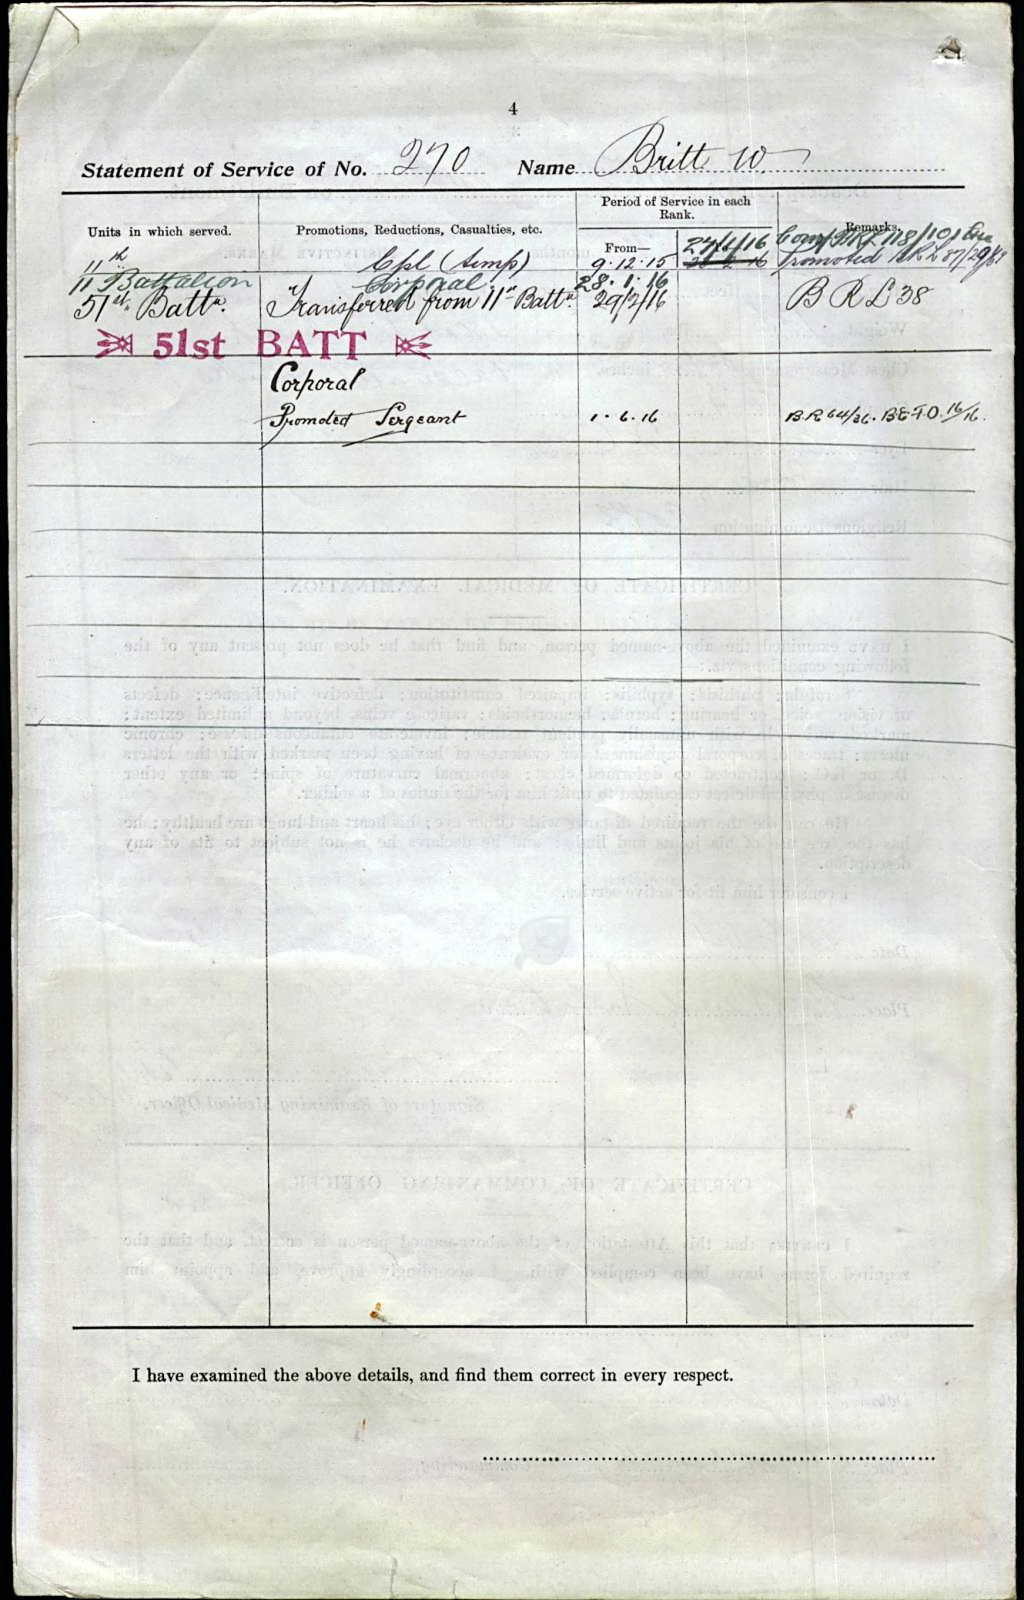 4
Statement of Service of No. 270 Name Britt W.
Units in which served. Promotions, Reductions, Casualties, etc. Period of Service in each Rank. Remarks.
From—
11th Cpl (temp) 9.12.15 27/1/16
11 Battalion Corporal 28.1.16 promoted
51st Battn. Transferred from 11th Battn. 29/2/16 B R L 38
51st BATT
Corporal
Promoted Sergeant 1.6.16 B.R 64/36. 16/16.
I have examined the above details, and find them correct in every respect.